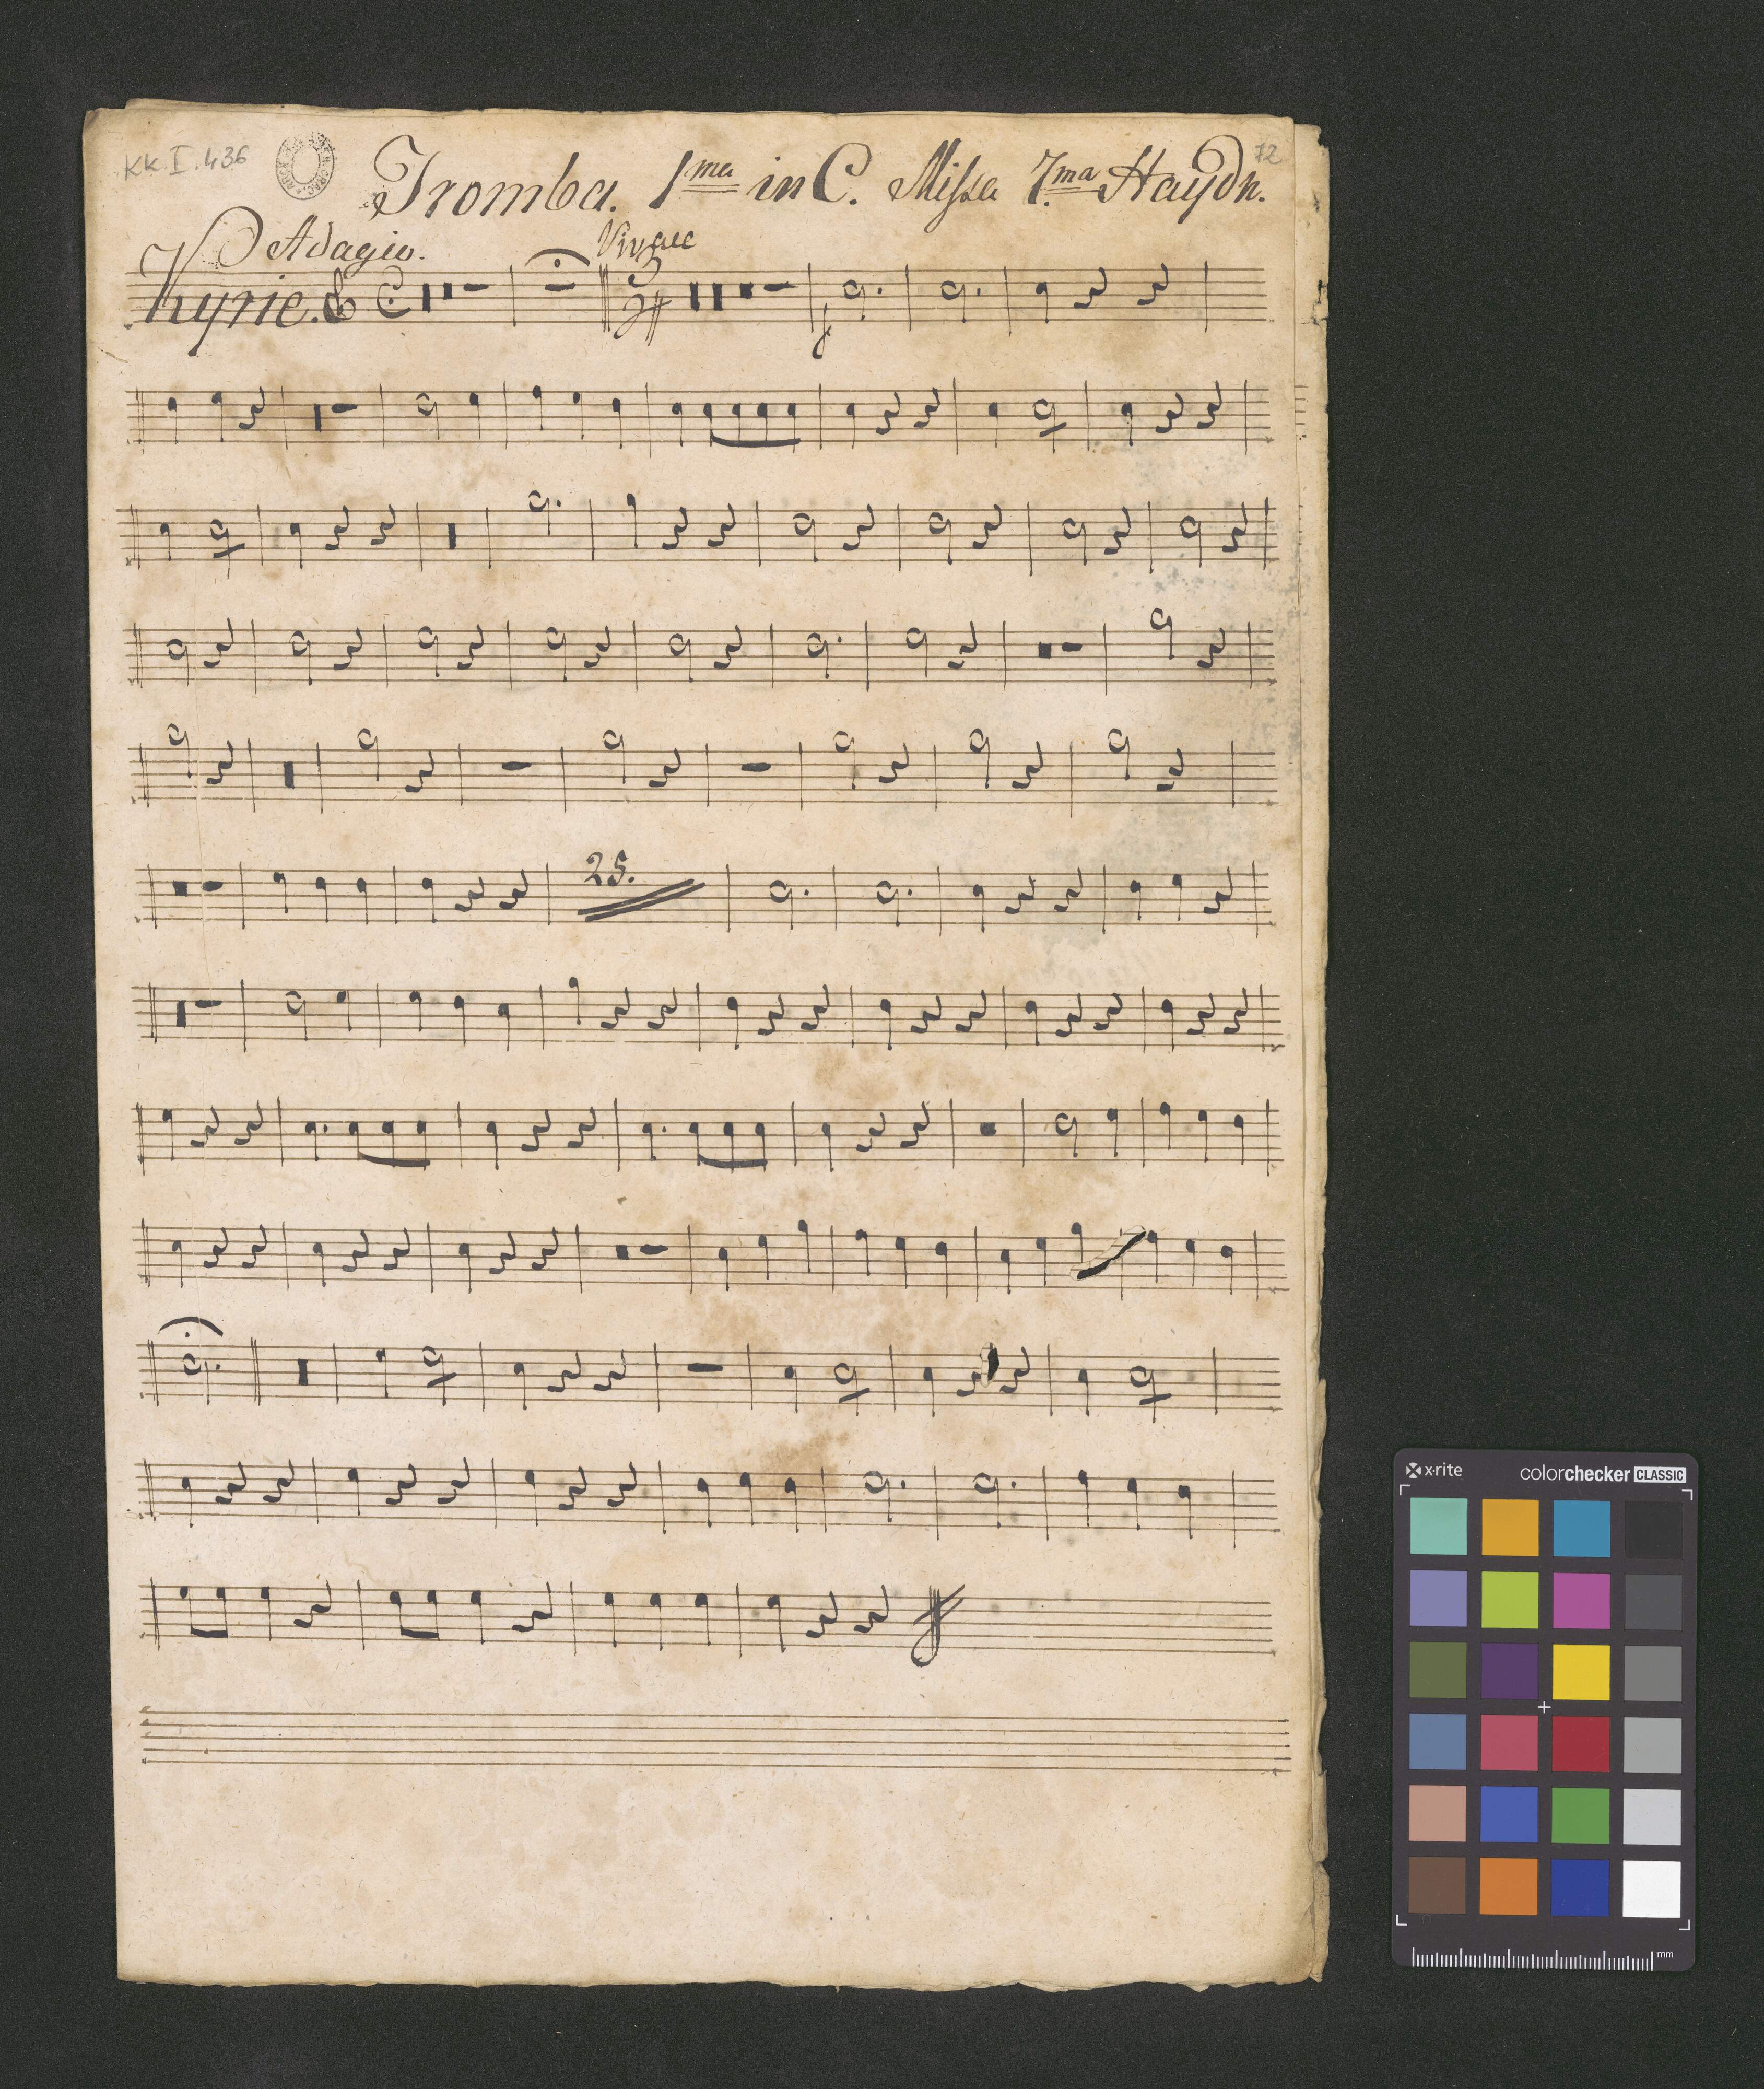 KK. I. 436
72
Tromba. 1ma in C. Missa 7.ma Haydn.
Adagio.
Vivace
Kyrie.
3
4
f
25.
x-rite
colorchecker CLASSIC
mm